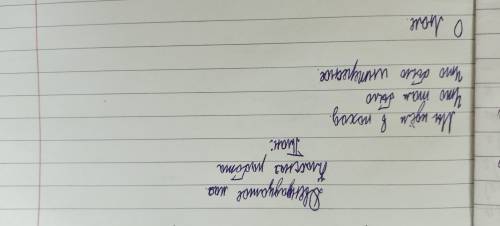 Двенадцатое мая
Классная работа
План:
Мы идём в поход.
Что там было
Что было интересное.
О